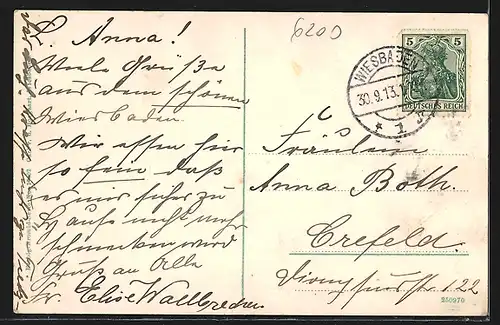 L. Anna!
Viele Grüße
aus dem schönen
Wiesbaden.
Wir essen hier
so fein daß
es mir sicher zu
Hause nicht mehr
schmecken wird
Gruß an Alle
Elise Wallbrecher
6200
5 5
DEUTSCHES REICH
WIESBADEN
30.9.13.
* 1
Fräulein
Anna Both.
Crefeld.
Dionysiusstr. 122
250970